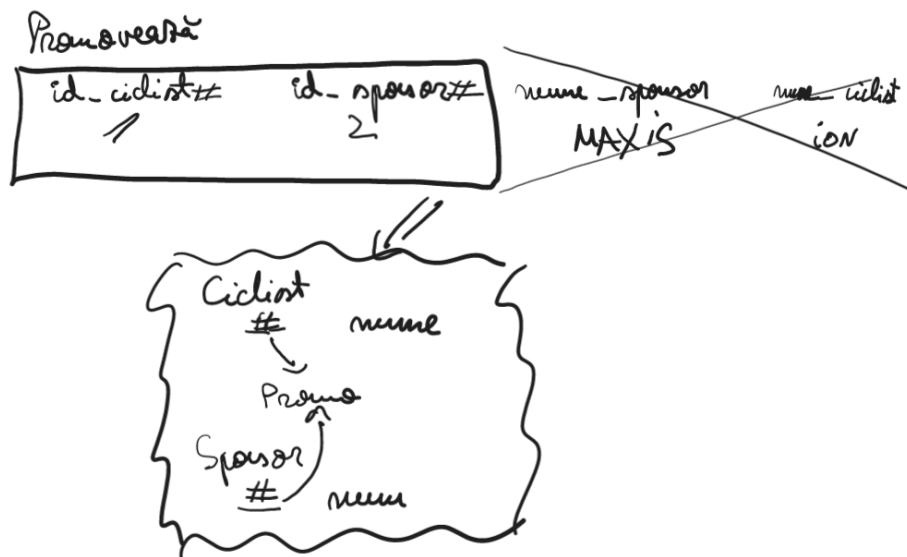 Promovează
id_ciclist# id_sponsor# nume_sponsor nume_ciclist
1 2 MAXiS iON
Ciclist
# nume
Promo
Sponsor
# num